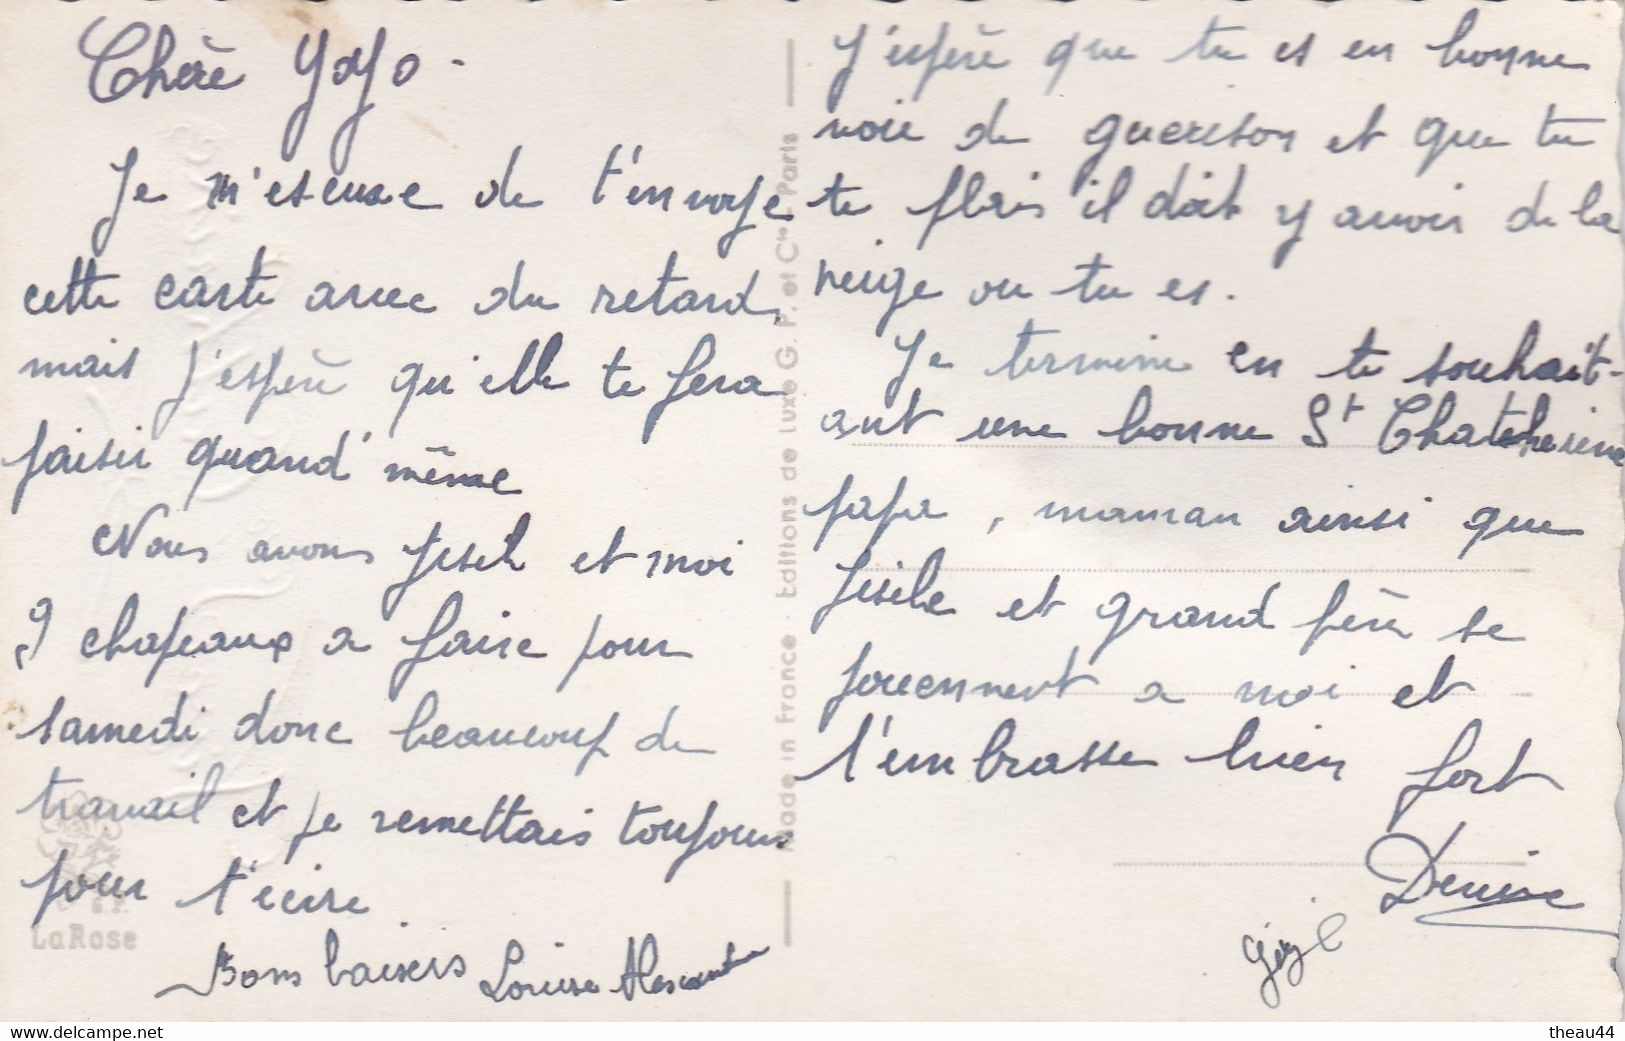 Chère Yoyo -
Je m'escuse de t'envoye
cette carte avec du retard,
mais j'espère qu'elle te fera
plaisir quand même
Nous avons et moi
9 chapeaux a faire pour
samedi donc beaucoup de
travail et je remettais toujours
pour t'ecire
Bons baisers Louise
G.P.
LaRose
Made in France · Editions de Luxe G. P. et Cie · Paris
J'espère que tu es en bonne
voie de guerison et que tu
te plais il doit y avoir de la
neige ou tu es.
Je termine en te souhait-
ant une bonne St Chatcherine
papa, maman ainsi que
et grand père se
jouennent a moi et
t'embrasse bien fort
Denise
delcampe.net
theau44